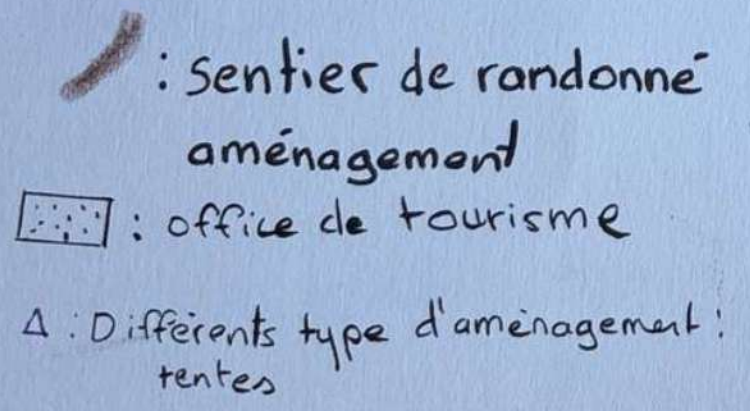 : sentier de randonné
aménagement
: office de tourisme
Δ : Différents type d'aménagement :
tentes